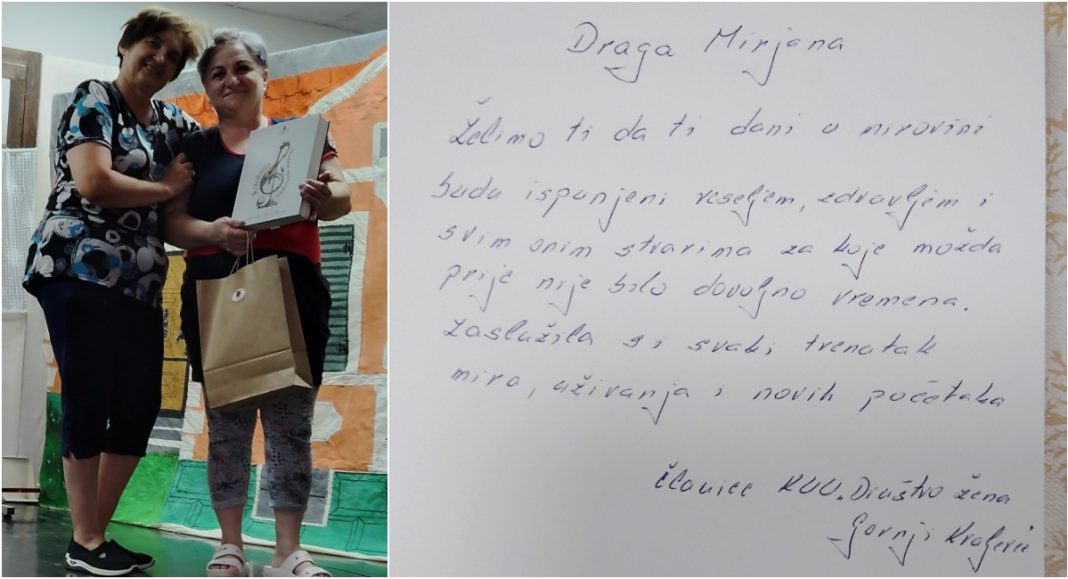 Draga Mirjana
Želimo ti da ti dani u mirovini
budu ispunjeni veseljem, zdravljem i
svim onim stvarima za koje možda
prije nije bilo dovoljno vremena.
Zaslužila si svaki trenutak
mira, uživanja i novih početaka
Članice KUU. Društvo žena
Gornji Kraljevec